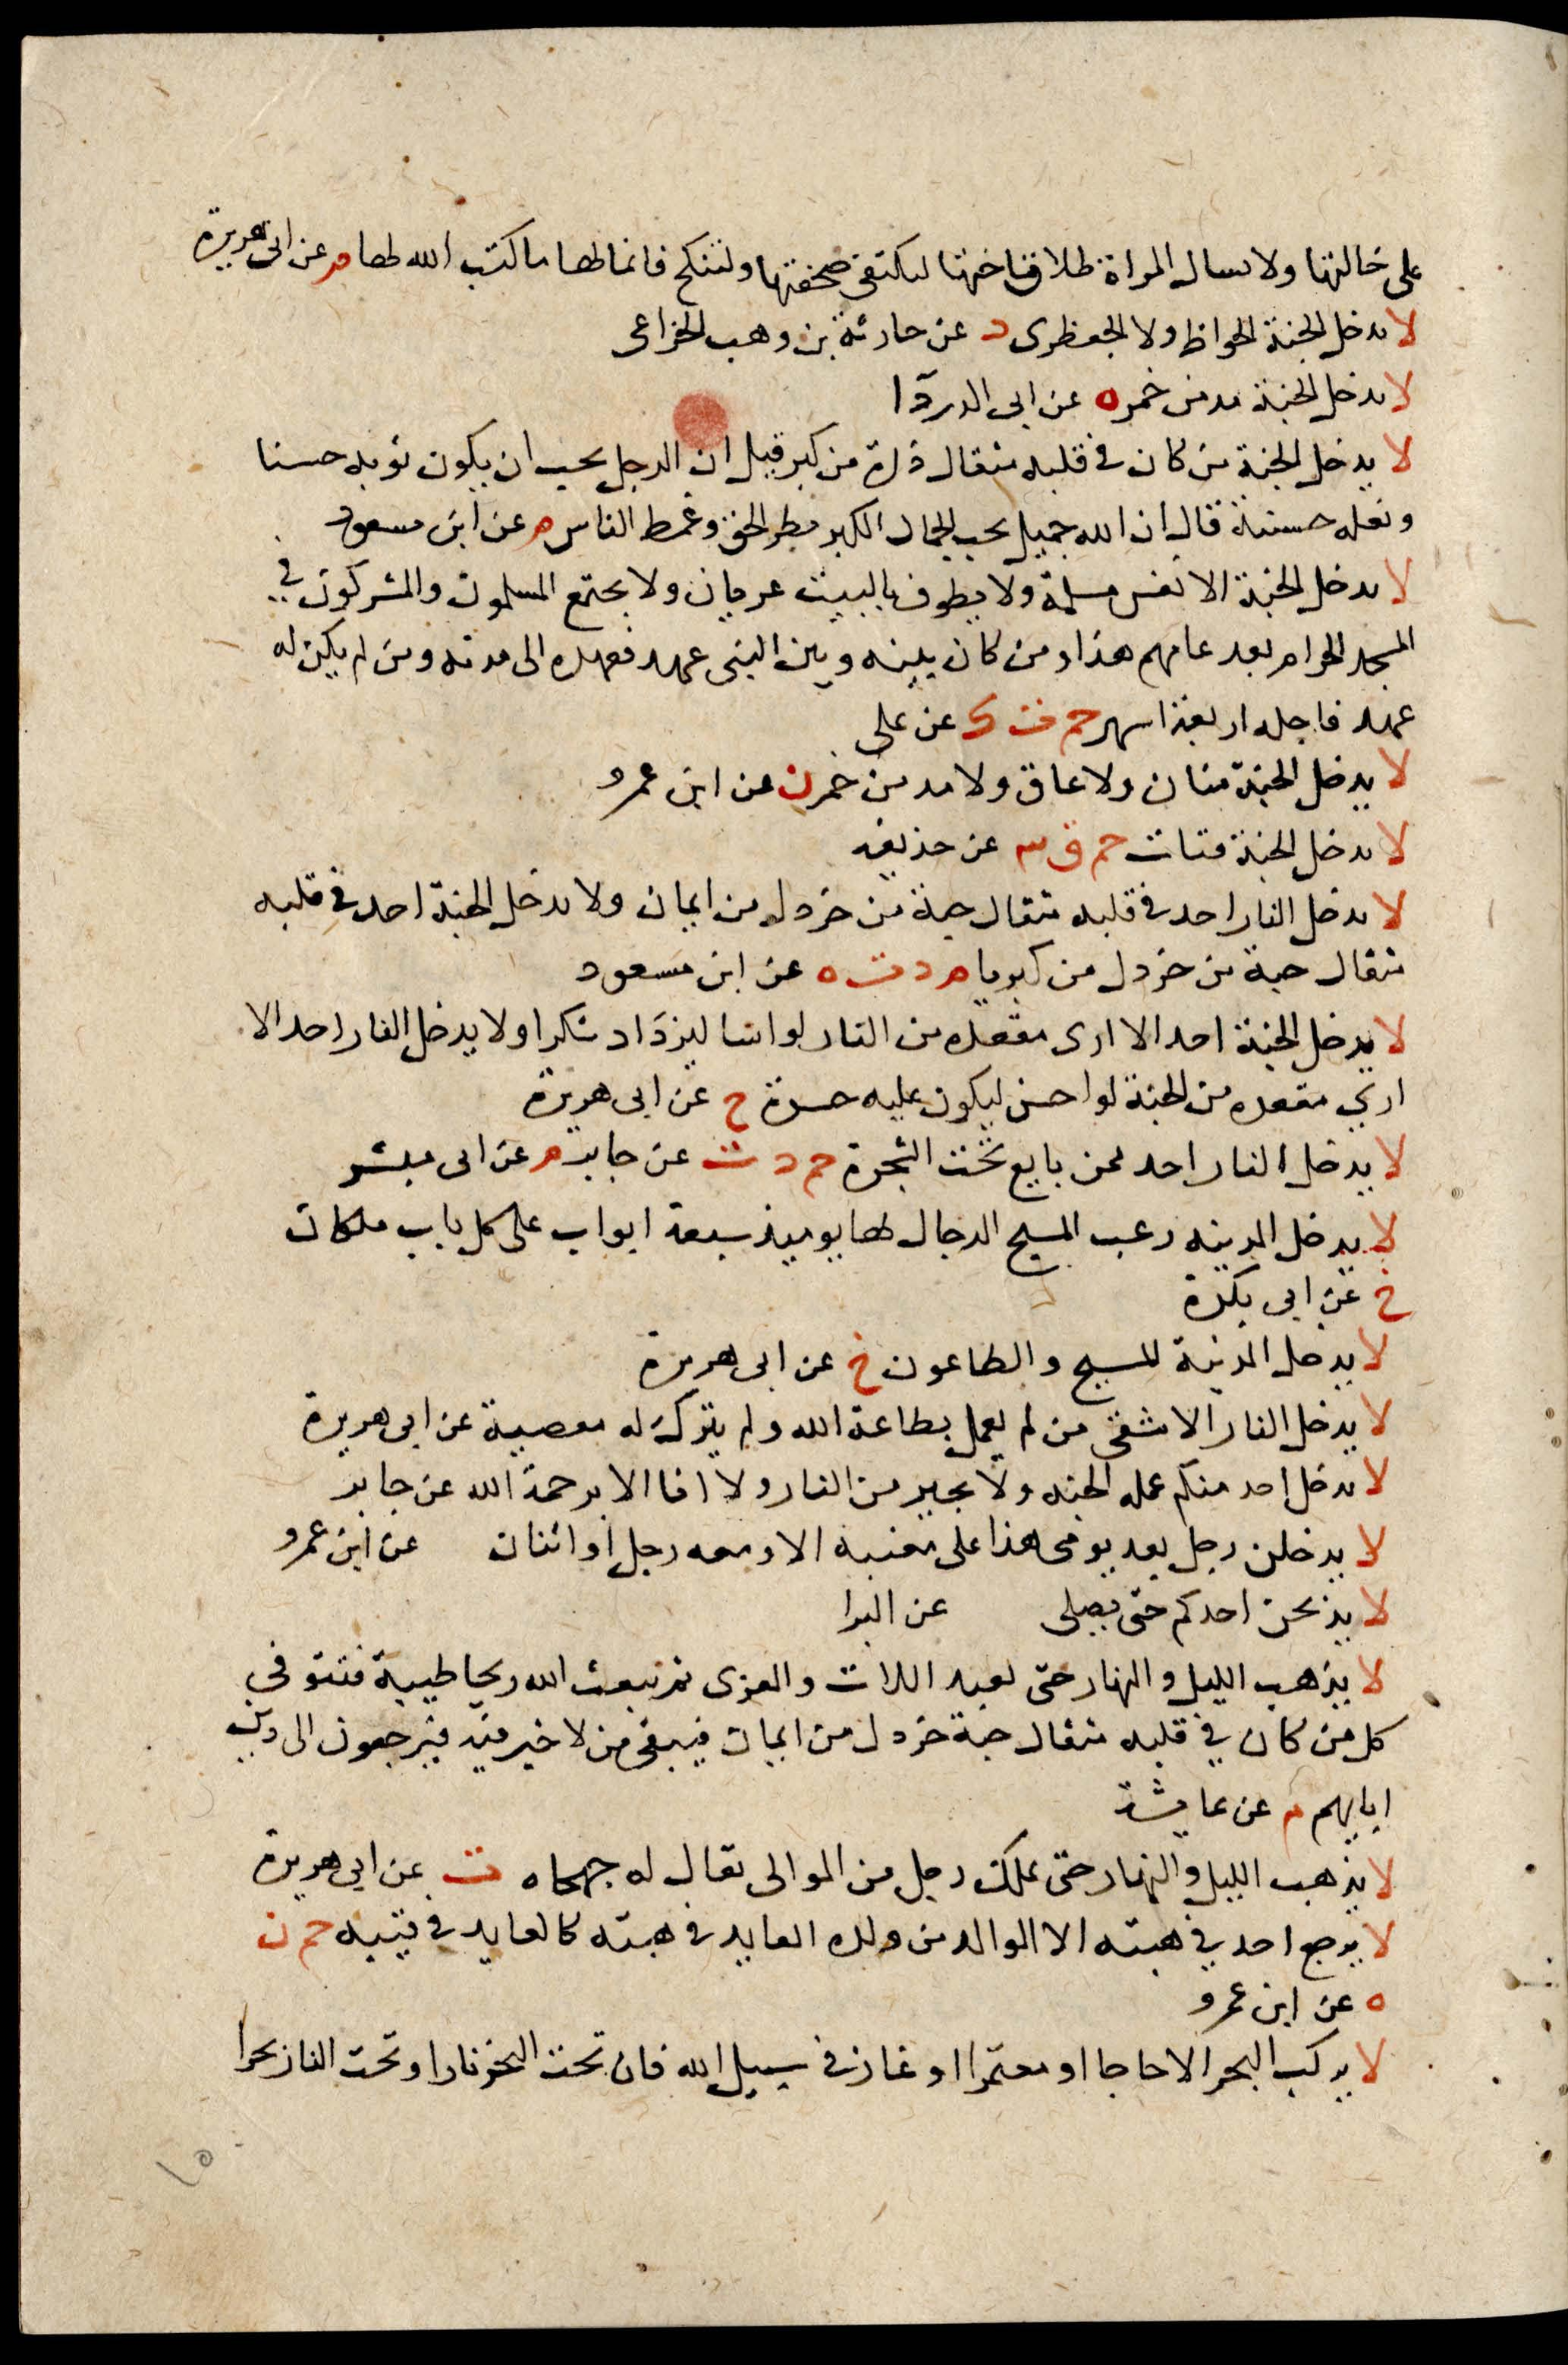 على خالتها ولا تسال المراة طلاق اختها لتكتفى صحفتها ولتنكح فانما لها ما كتب الله لها م عن ابى هريرة
لا يدخل الجنة الجواظ ولا الجعظرى د عن حارثة بن وهب الخزاعى
لا يدخل الجنة مدمن خمر ه عن ابى الدردآ
لا يدخل الجنة من كان فى قلبه مثقال ذرة من كبر قيل ان الرجل يحب ان يكون ثوبه حسنا
ونعله حسنة قال ان الله جميل يحب الجمال الكبر بطر الحق وغمط الناس م عن ابن مسعود
لا يدخل الجنة الا نفس مسلمة ولا يطوف بالبيت عريان ولا يجتمع المسلمون والمشركون في
المسجد الحرام بعد عامهم هذا ومن كان بينه وبين النبى عهد فعهده الى مدته ومن لم يكن له
عهد فاجله اربعة اشهر حم ت ك عن على
لا يدخل الجنة منان ولا عاق ولا مدمن خمر ن عن ابن عمرو
لا يدخل الجنة قتات حم ق ٣ عن حذيفه
لا يدخل النار احد فى قلبه مثقال حبة من خردل من ايمان ولا يدخل الجنة احد فى قلبه
مثقال حبة من خردل من كبريا م د ت ه عن ابن مسعود
لا يدخل الجنة احد الا ارى مقعده من النار لو اسا ليزداد شكرا ولا يدخل النار احد الا
اري مقعده من الجنة لو احسن ليكون عليه حسرة خ عن ابى هريرة
لا يدخل النار احد ممن بايع تحت الشجرة حم د ت عن جابر م عن ام مبشر
لا يدخل المدينه رعب المسيح الدجال لها يوميذ سبعة ابواب على كل باب ملكان
خ عن ابى بكرة
لا يدخل المدينة المسيح والطاعون خ عن ابى هريرة
لا يدخل النار الا شقى من لم يعمل بطاعة الله ولم يترك له معصية عن ابى هريرة
لا يدخل احد منكم عمله الجنه ولا يجير من النار ولا انا الا برحمة الله عن جابر
لا يدخلن رجل بعد يومى هذا على مغيبة الا ومعه رجل او اثنان عن ابن عمرو
لا يذبحن احدكم حتى يصلى عن البرا
لا يذهب الليل والنهار حتى تعبد اللات والعزى ثم يبعث الله ريحا طيبة فتتوفي
كل من كان في قلبه مثقال حبة خردل من ايمان فيبقى من لا خير فيه فيرجعون الى دين
ابايهم م عن عايشة
لا يذهب الليل والنهار حتى يملك رجل من الموالى يقال له جهجاه ت عن ابى هريرة
لا يرجع احد في هبته الا الوالد من ولده العايد فى هبته كالعايد فى قييه حم ن
ه عن ابن عمرو
لا يركب البحر الا حاجا او معتمرا او غاز فى سبيل الله فان تحت البحر نارا وتحت النار بحرا